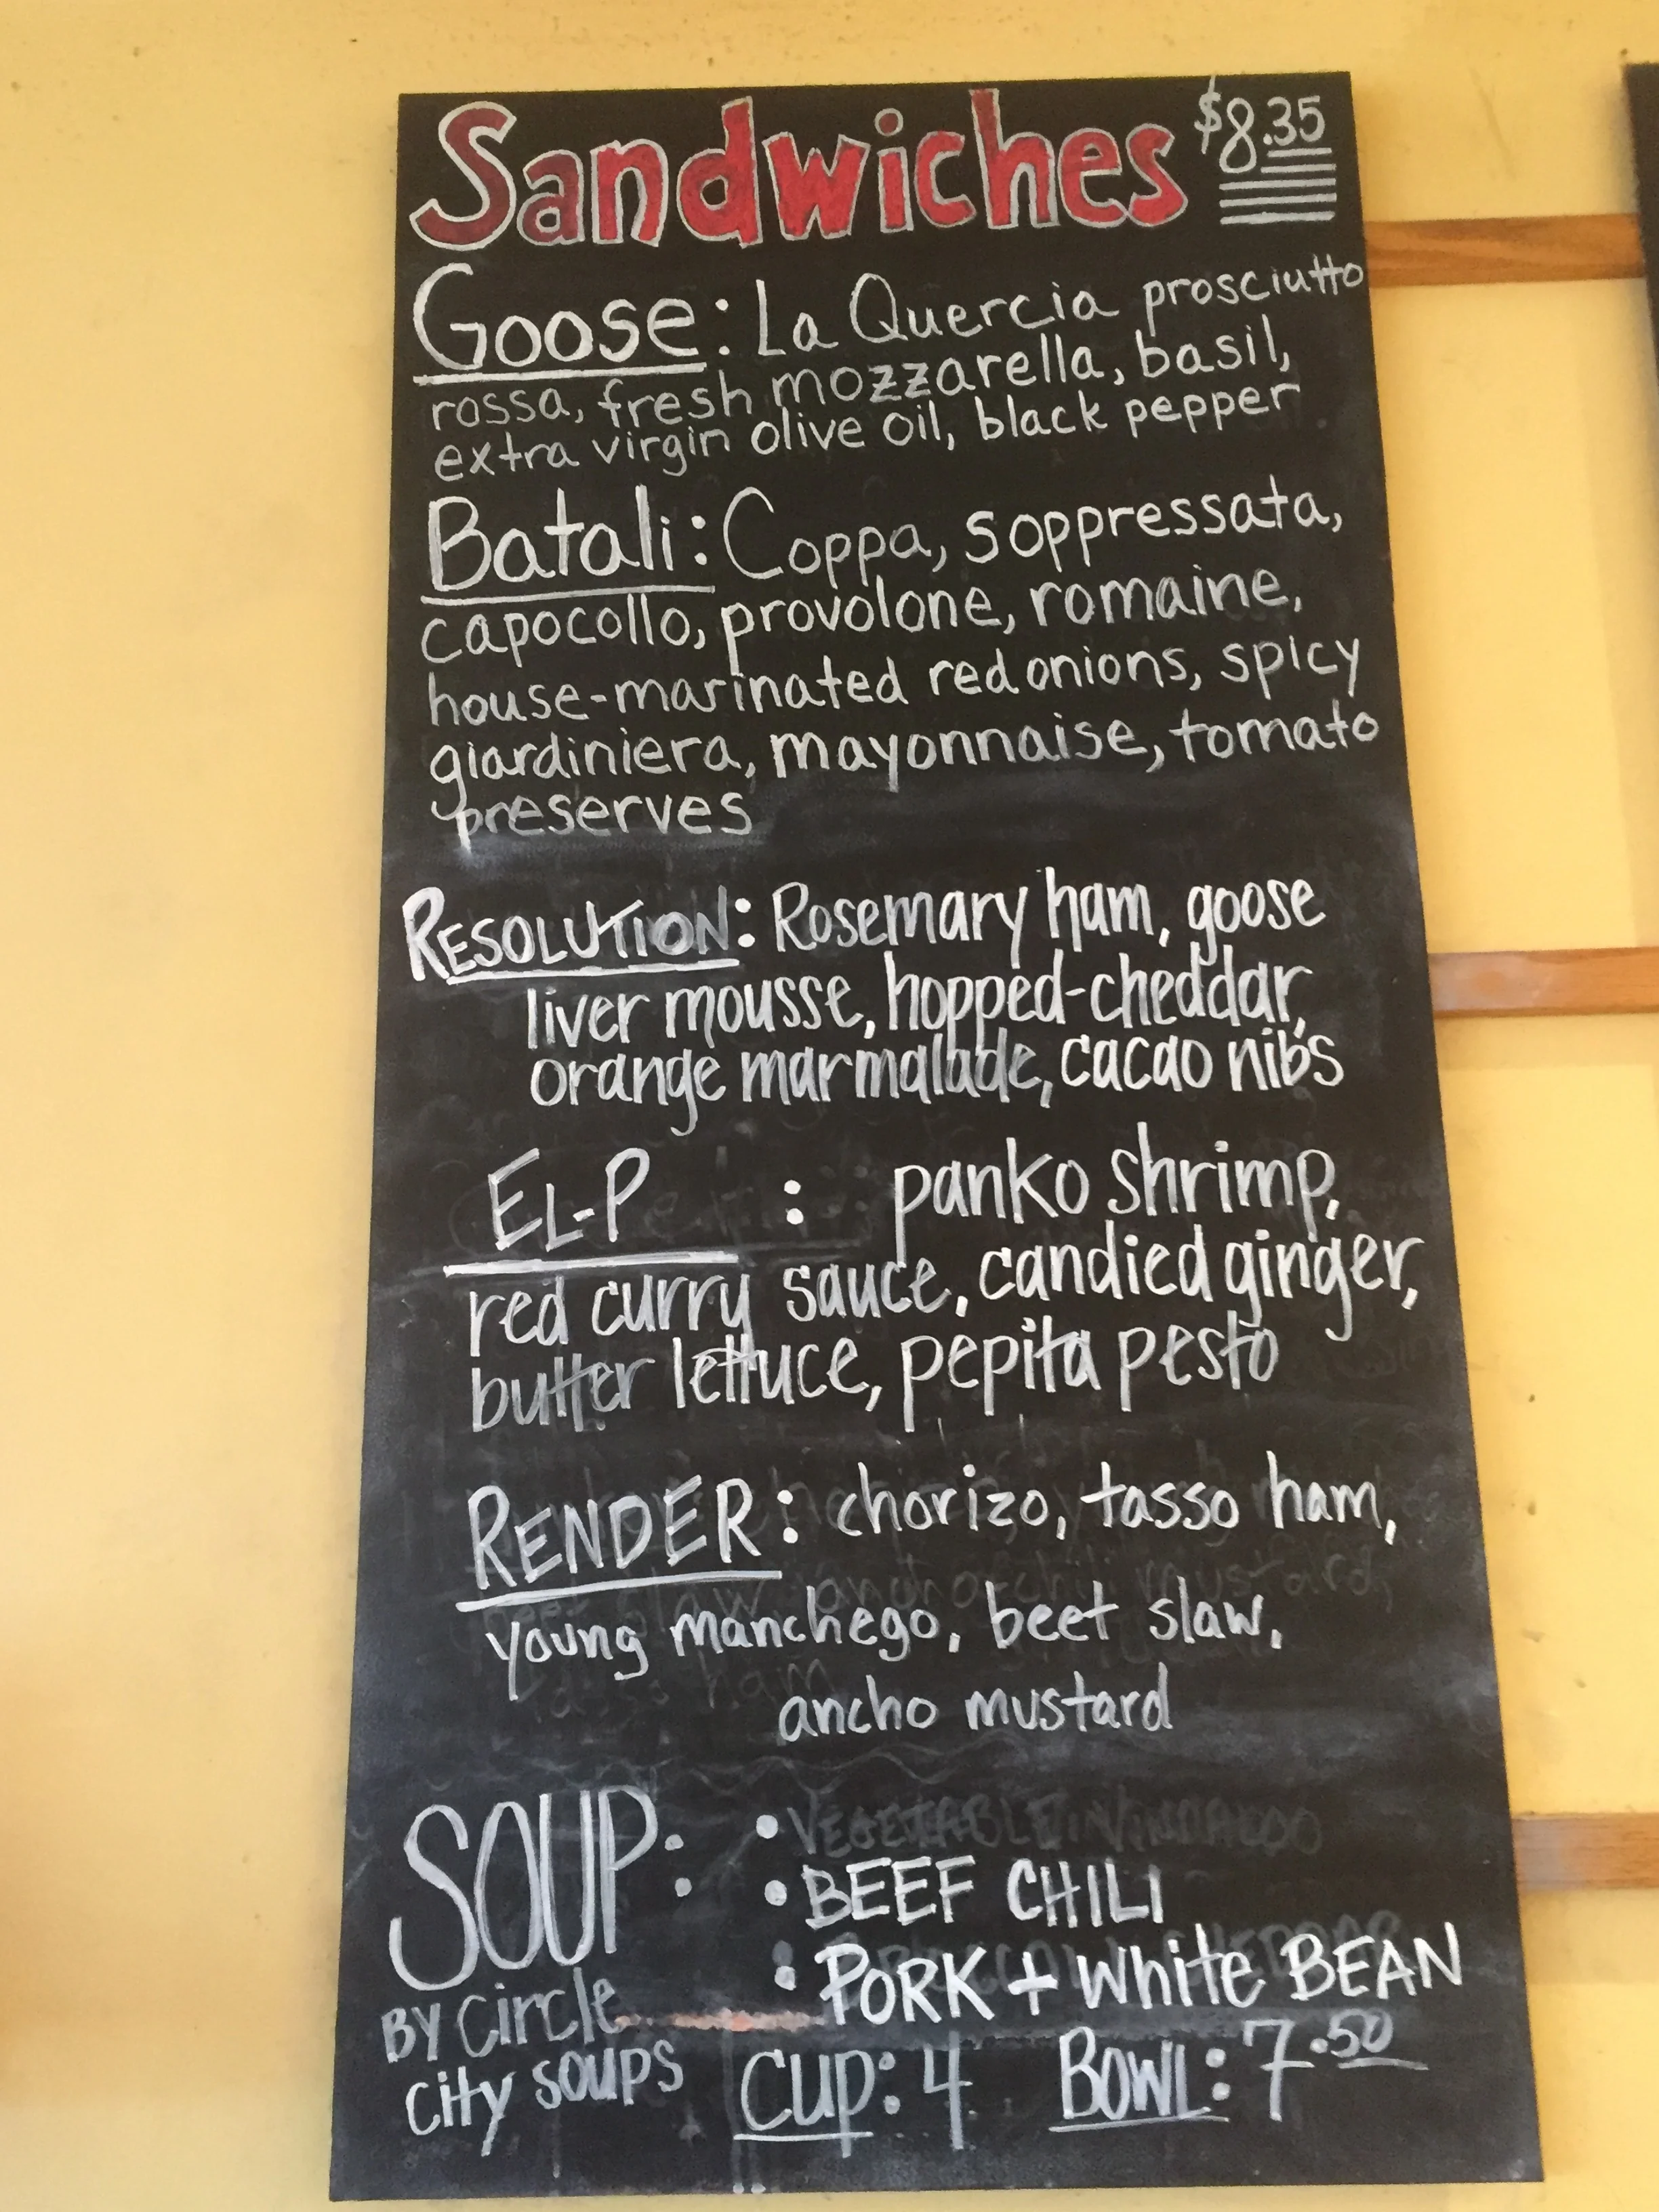 Sandwiches $8.35
Goose: La Quercia prosciutto
rossa, fresh mozzarella, basil,
extra virgin olive oil, black pepper
Batali: Coppa, soppressata,
capocollo, provolone, romaine,
house-marinated red onions, spicy
giardiniera, mayonnaise, tomato
preserves
RESOLUTION: Rosemary ham, goose
liver mousse, hopped-cheddar,
orange marmalade, cacao nibs
EL-P : panko shrimp,
red curry sauce, candied ginger,
butter lettuce, pepita pesto
RENDER: chorizo, tasso ham,
young manchego, beet slaw,
ancho mustard
SOUP: • VEGETABLE
• BEEF CHILI
• PORK + White BEAN
BY Circle
City SOUPS
Cup: 4 Bowl: 7.50